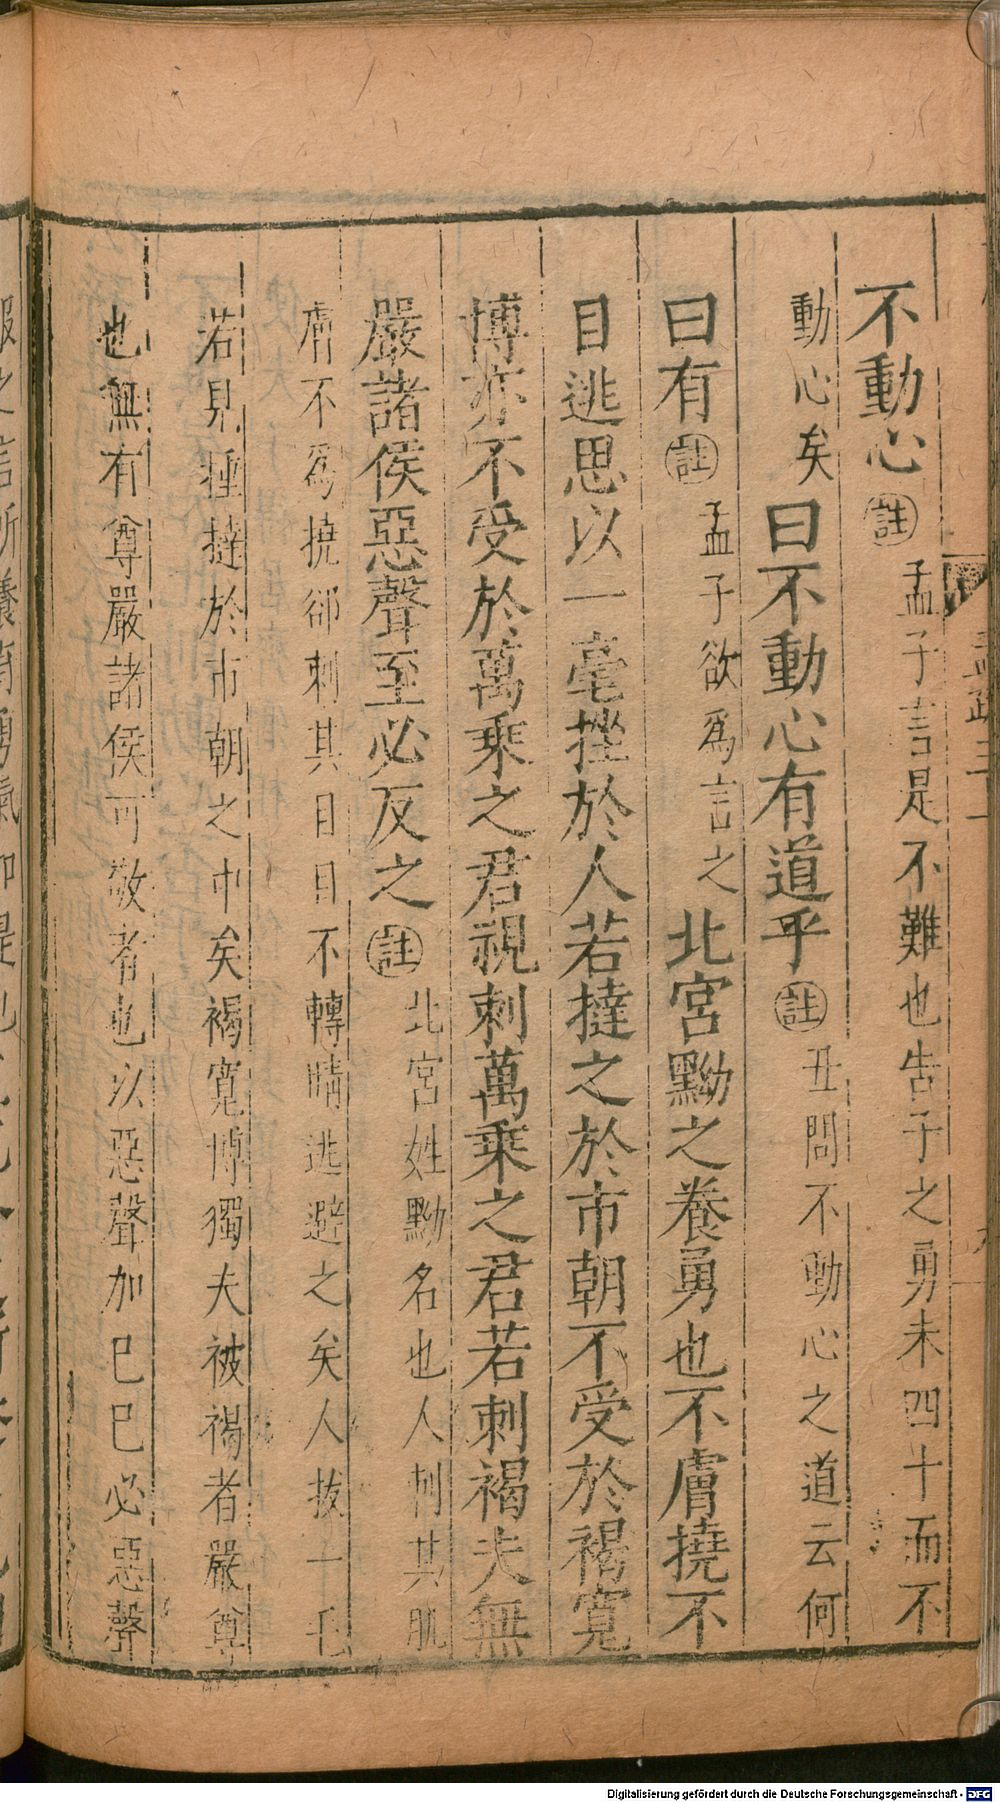 不動心註孟子言是不難也告子之勇未四十而不
動心矣曰不動心有道乎註丑問不動心之道云何
曰有註孟子欲爲言之北宮黝之養勇也不膚撓不
目逃思以一毫挫於人若撻之於市朝不受於褐寬
博亦不受於萬乘之君視刺萬乘之君若刺褐夫無
嚴諸侯惡聲至必反之註北宮姓黝名也人刺其肌
膚不爲撓郤刺其目目不轉睛逃避之矣人拔一毛
若見捶撻於市朝之中矣褐寬博獨夫被褐者嚴尊
也無有尊嚴諸侯可敬者也以惡聲加巳巳必惡聲
孟疏三上
九
Digitalisierung gefördert durch die Deutsche Forschungsgemeinschaft - DFG